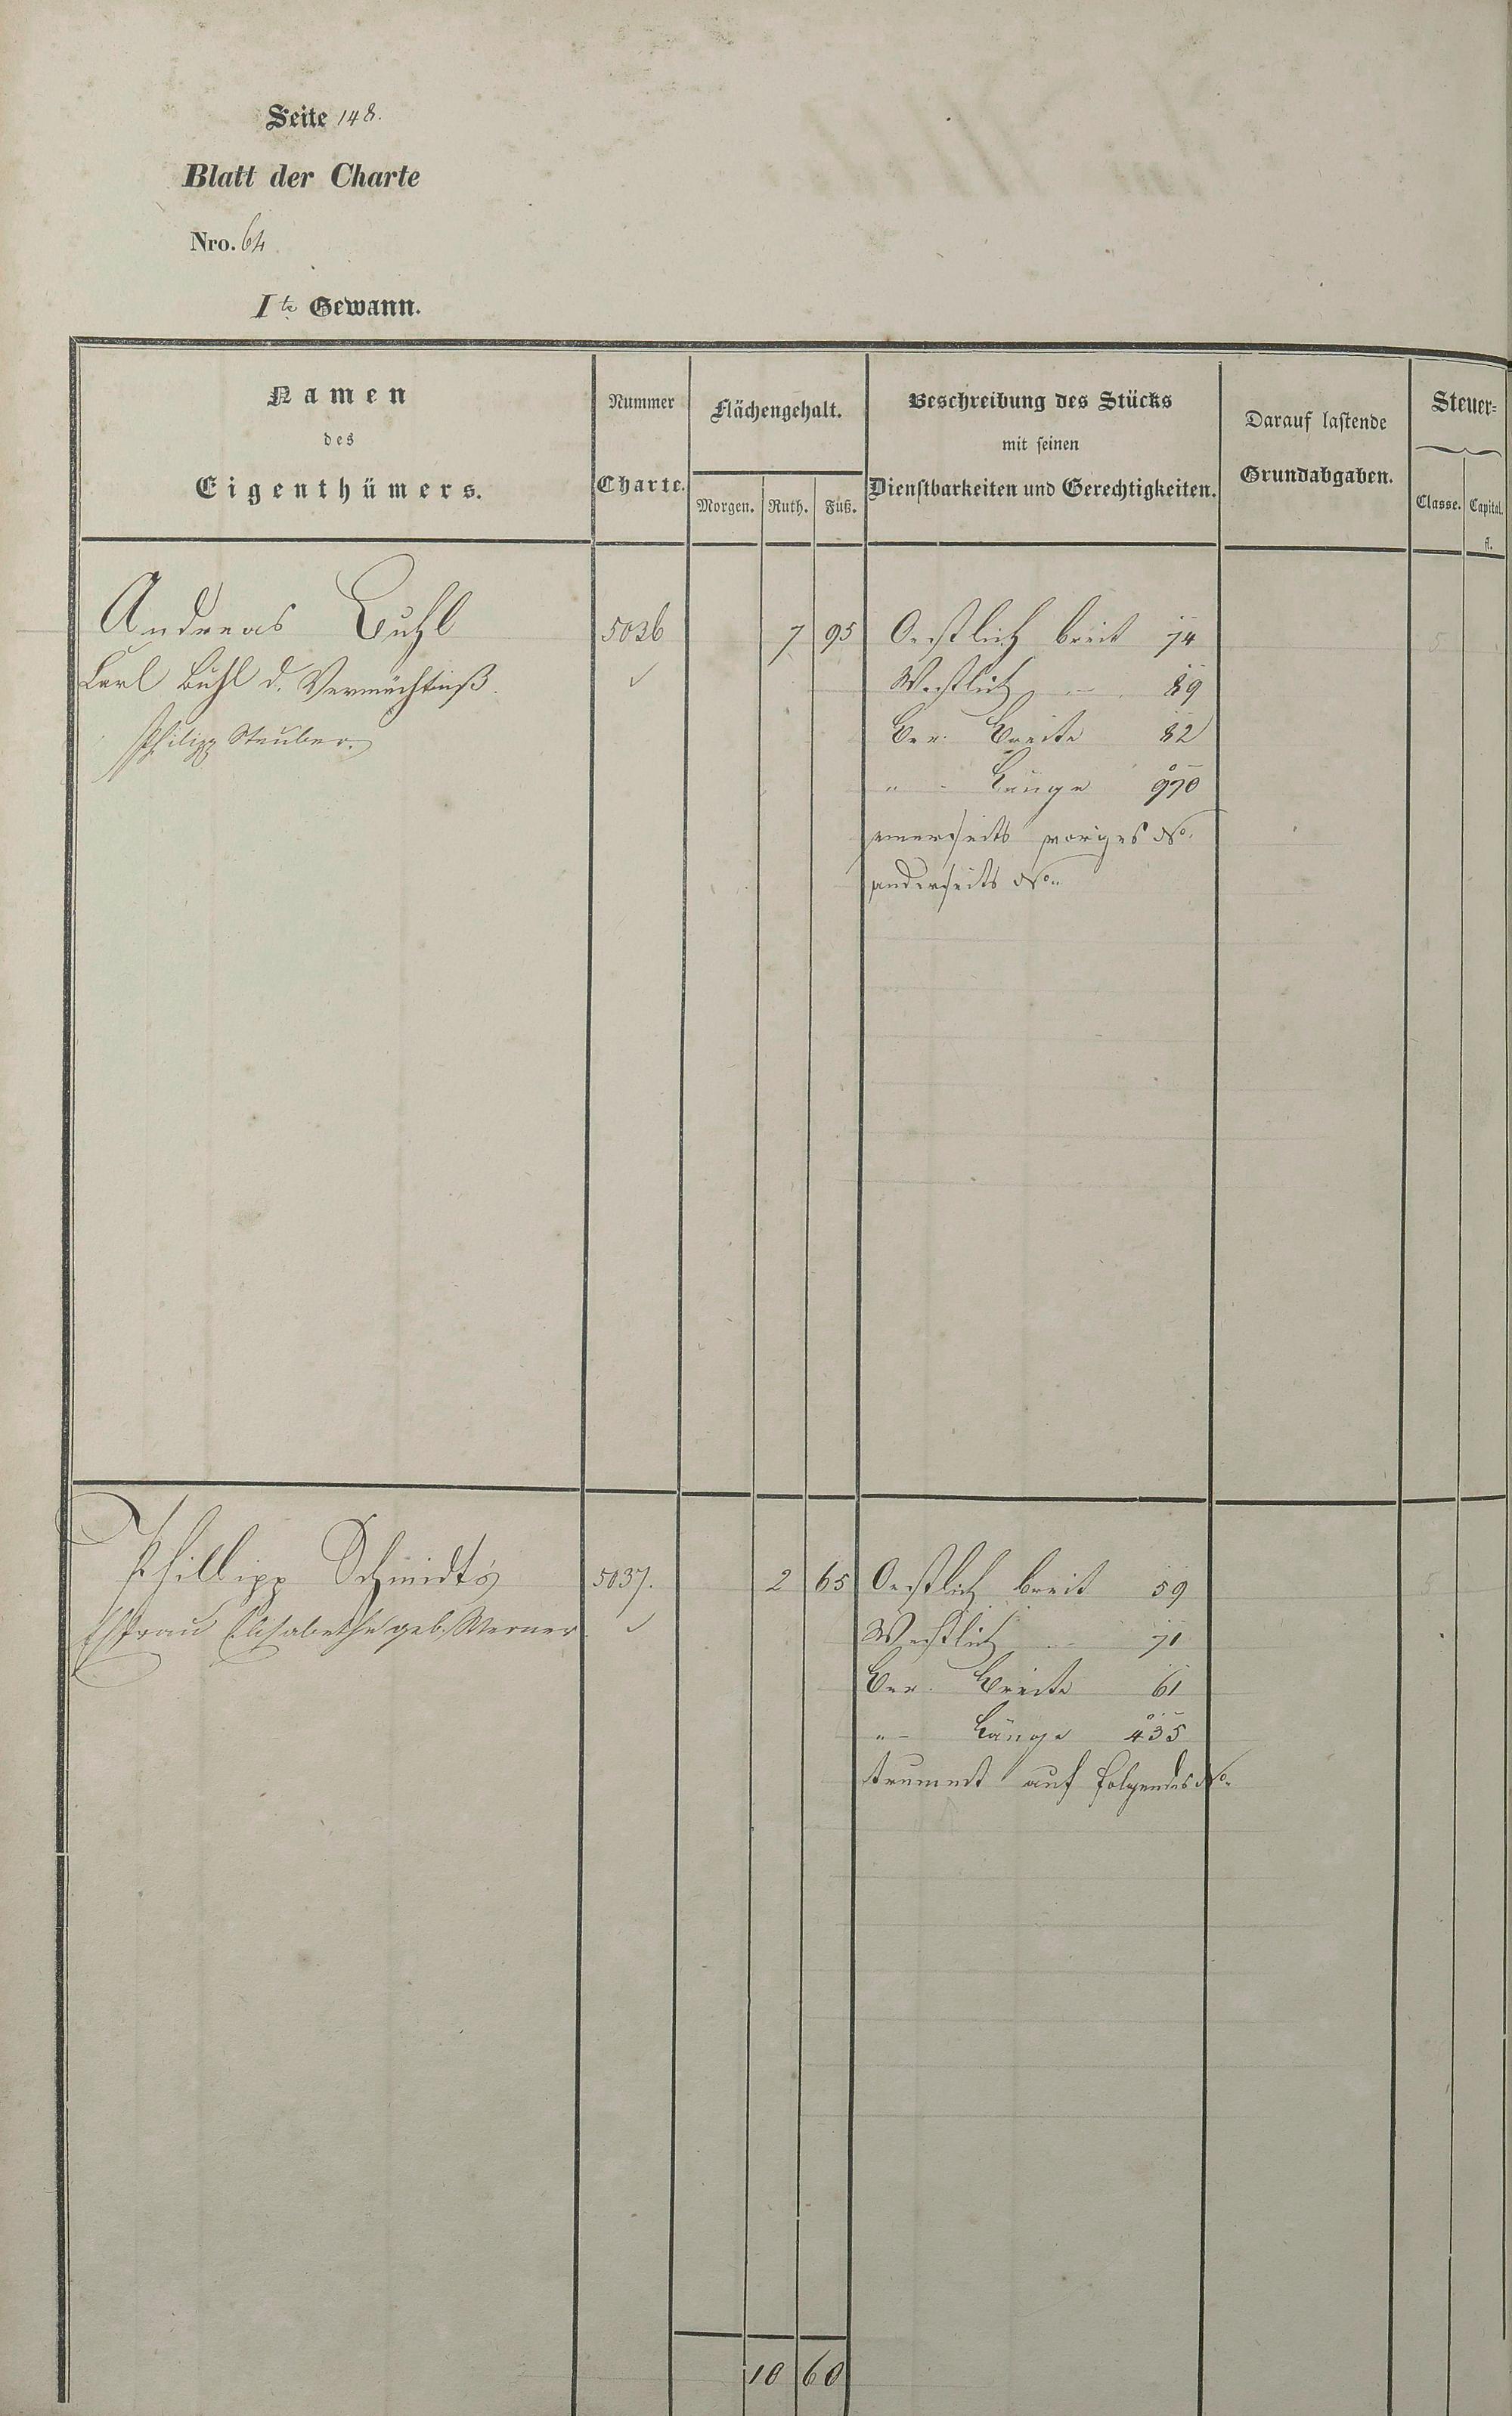 Seite 148.
Blatt der Charte
Nro. 64
Ite Gewann.
Namen
des
Eigenthümers.
Nummer
Charte.
Flächengehalt.
Morgen. Ruth. Fuß.
Beschreibung des Stücks
mit seinen
Dienstbarkeiten und Gerechtigkeiten.
Darauf lastende
Grundabgaben.
Steuer-
Classe. Capital.
fl.
Andreas Buhl 5036 7 95 Oestlich breit 74 5
Carl Buhl d. Vermächtniß. ✓ Westlich " 89
Philipp Steuber. Ber. Breite 82
" Länge 970
einerseits voriges No.
anderseits No.
Phillipp Schmidt's 5037. 2 65 Oestlich breit 59 5
Ehfrau Elisabethe geb. Werner ✓ Westlich " 71
Ber. Breite 61
" Länge 435
trumest auf folgendes No.
10 60